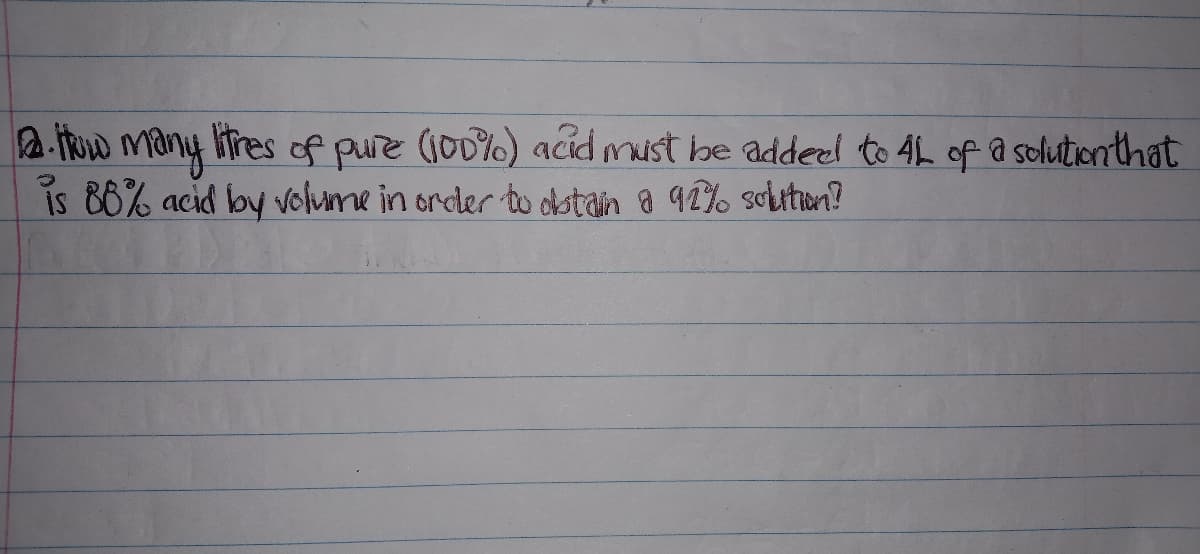 a. How many litres of pure (100%) acid must be added to 4L of a solution that
is 88% acid by volume in order to obtain a 92% solution?